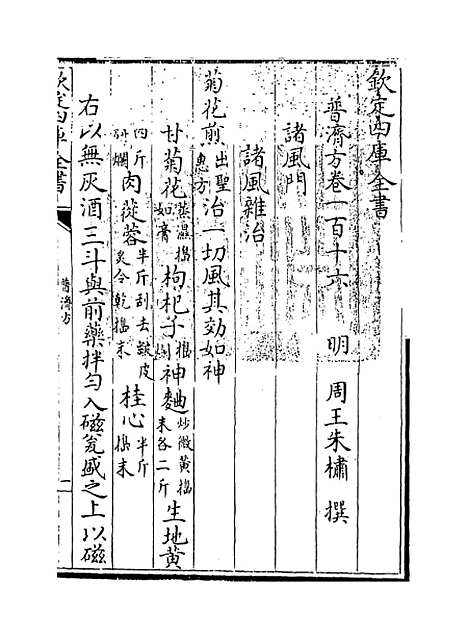 欽定四庫全書
普濟方卷一百十六
明 周王朱橚 撰
諸風門
諸風雜治
菊花煎出聖惠方治一切風其効如神
甘菊花蒸濕擣如膏枸杞子擣爛神麯炒微黄擣末各二斤生地黄
四斤研爛肉蓯蓉半斤刮去皴皮炙令乾擣末桂心半斤擣末
右以無灰酒三斗與前藥拌匀入磁瓮盛之上以磁
欽定四庫全書
普濟方
一